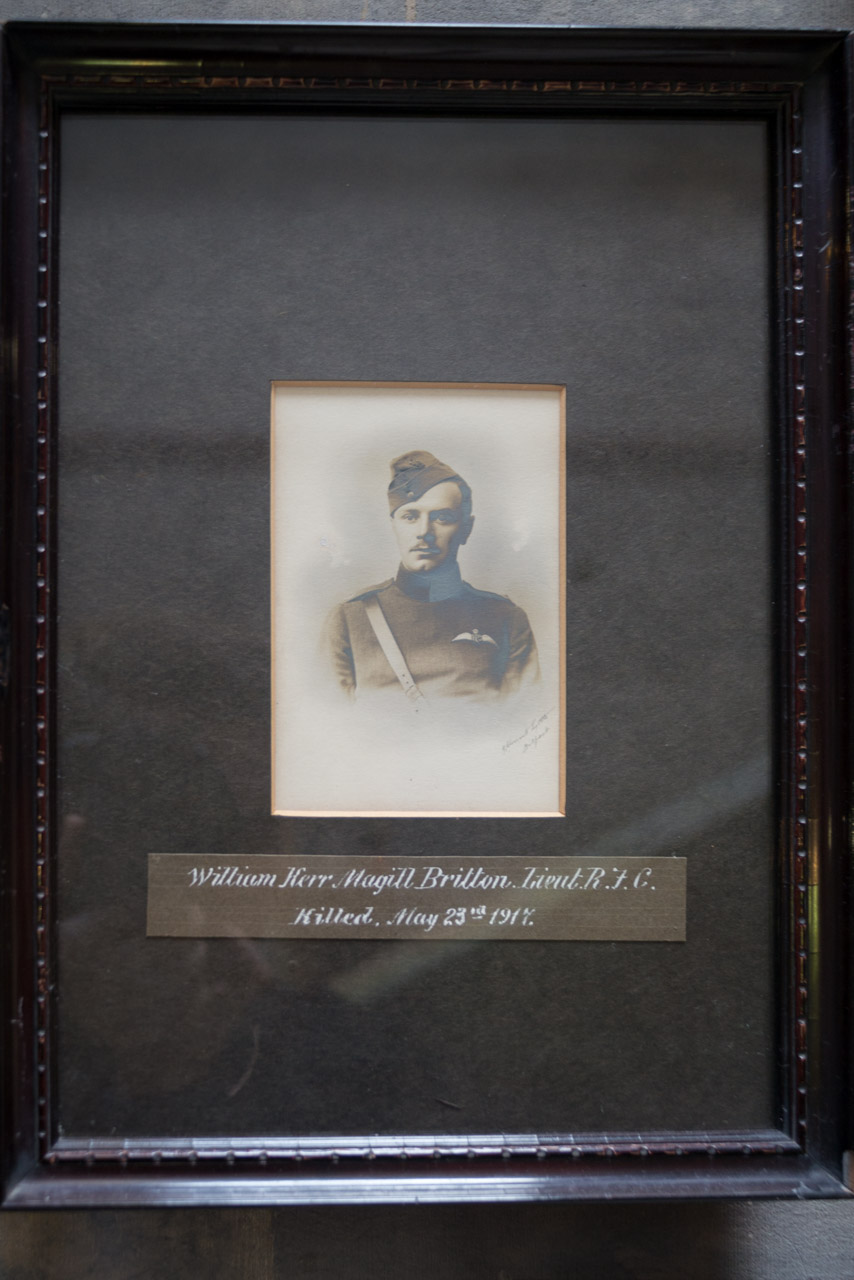 William Kerr Magill Britton. Lieut. R. F. C.
Killed, May 23rd 1917.